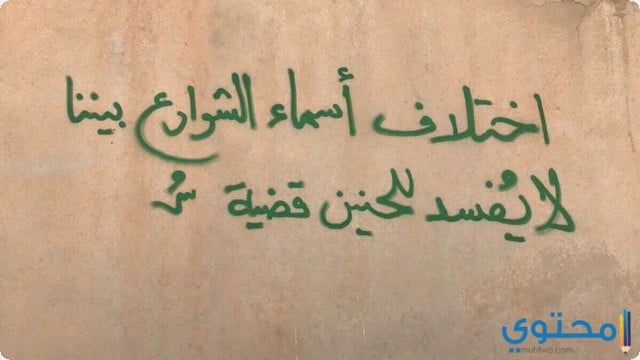 اختلاف أسماء الشوارع بيننا
لا يُفسد للحنين قضية
محتوي
muhtwa.com